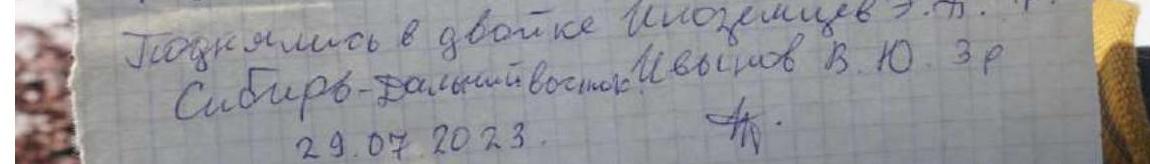 Поднялись в двойке Иноземцев Э.
Сибирь-Дальний восток. В. Ю. 3р
29.07.2023.